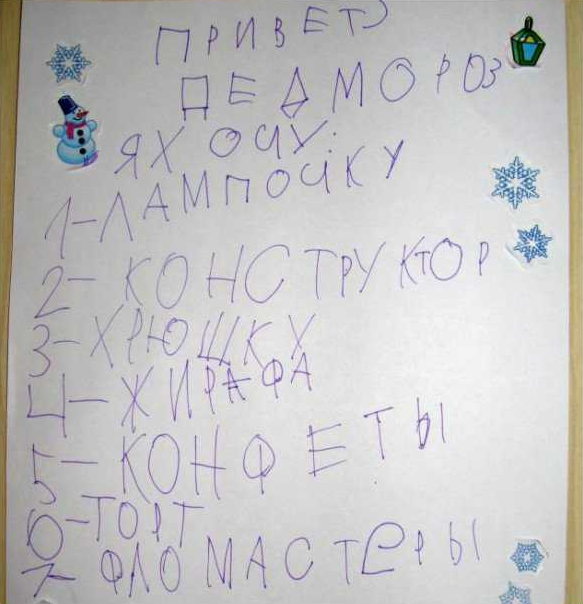 ПРИВЕТ
ДЕДМОРОЗ
ЯХОЧУ:
1-ЛАМПОЧКУ
2-КОНСТРУКТОР
3-ХРЮШКУ
4-ЖИРАФА
5-КОНФЕТЫ
6-ТОРТ
7-ФЛОМАСТЕРЫ